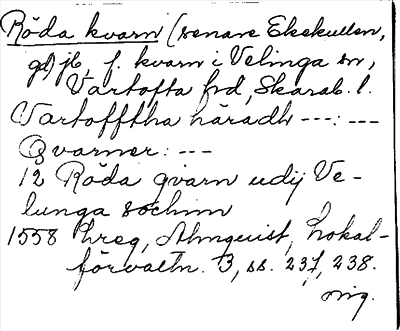 Röda kvarn (senare Ekekullen,
gd) jb, f. kvarn i Velinga sn,
Vartofta hd, Skarab. l.
Vartofftha häradh ---: ---
Qvarner: ---
12 Röda qvarn udij Ve-
lunga sochnn
1558 hreg, Almquist, Lokal-
förvaltn. 3, ss. 237, 238.